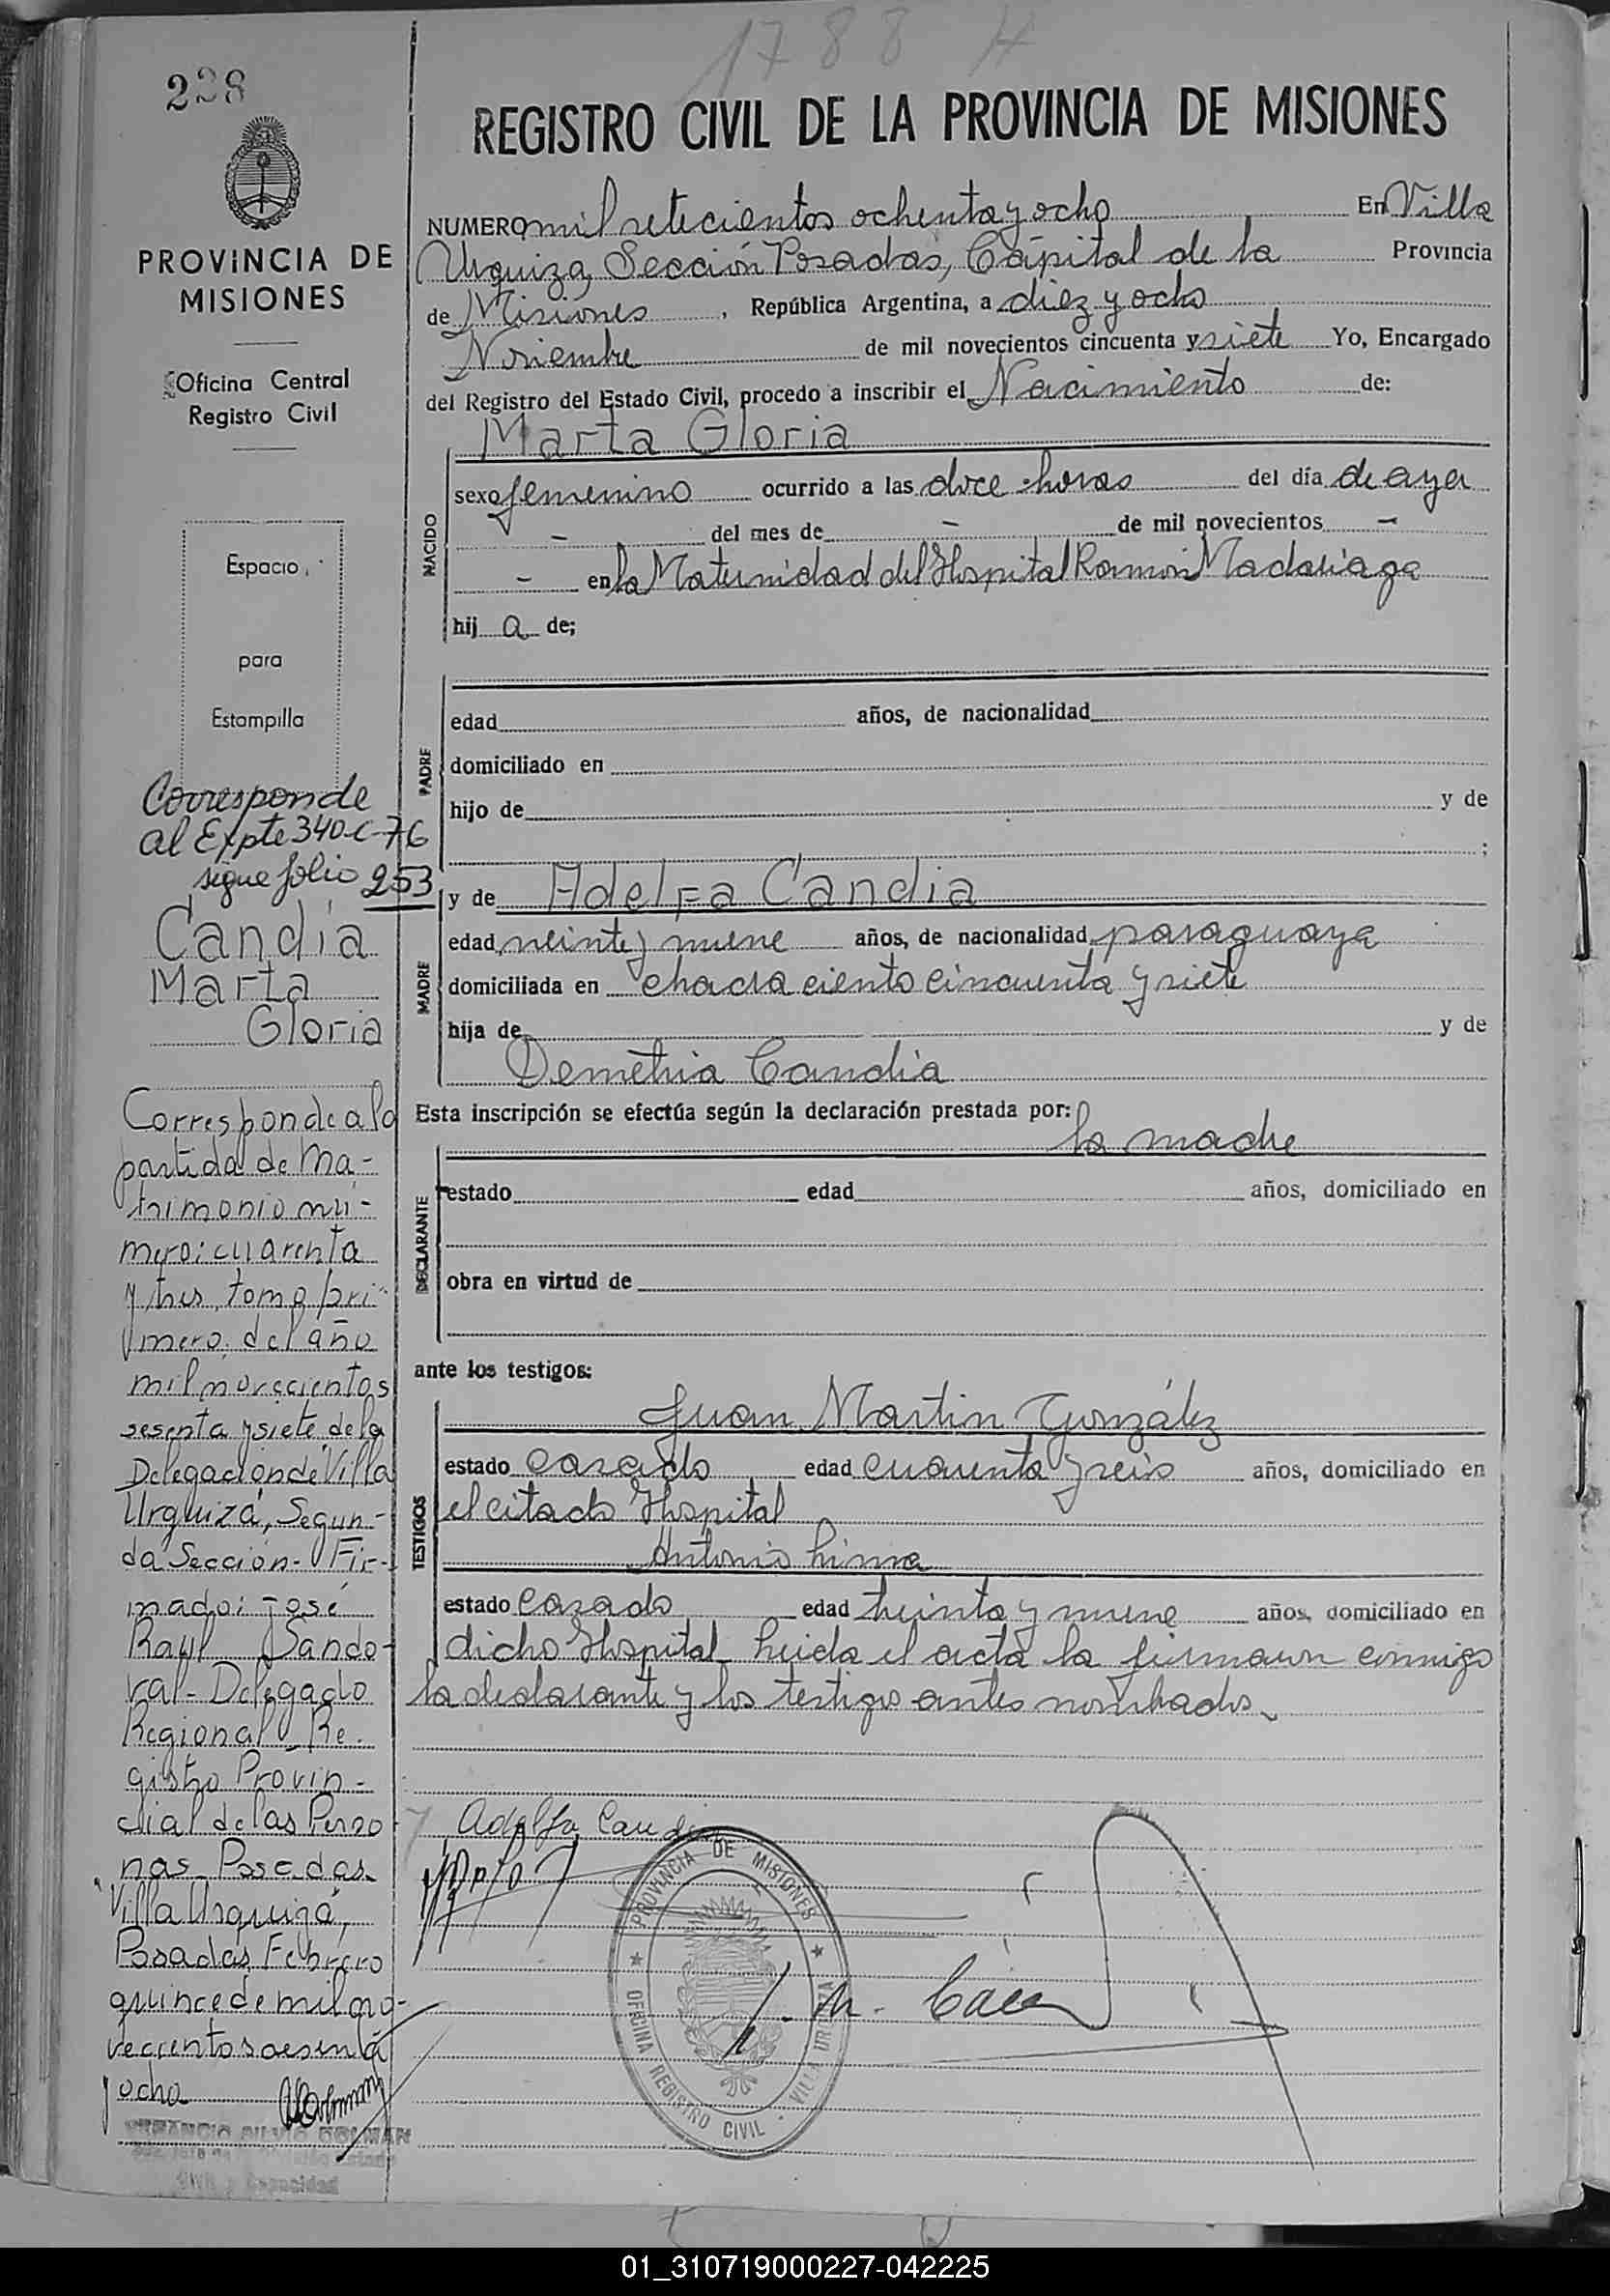 1788 H
228
REGISTRO CIVIL DE LA PROVINCIA DE MISIONES
PROVINCIA DE
MISIONES
Oficina Central
Registro Civil
Espacio
para
Estampilla
Corresponde
al Expte 340-C-76
sigue folio 253
Candia
Marta
Gloria
Corresponde a la
partida de ma-
trimonio nú-
mero: cuarenta
y tres, tomo pri-
mero, del año
mil novecientos
sesenta y siete de la
Delegación de Villa
Urquiza, Segun-
da Sección - Fir-
mado: José
Raul Sando-
val - Delegado
Regional - Re-
gistro Provin-
cial de las Perso
nas - Posadas.
Villa Urquiza,
Posadas, Febrero
quince de mil no-
vecientos sesenta
y ocho
NUMERO mil setecientos ochenta y ocho En Villa
Urquiza, Sección Posadas, Cápital de la Provincia
de Misiones, República Argentina, a diez y ocho
Noviembre de mil novecientos cincuenta y siete Yo, Encargado
del Registro del Estado Civil, procedo a inscribir el Nacimiento de:
Marta Gloria
NACIDO
sexo femenino ocurrido a las doce horas del día de ayer
- del mes de - de mil novecientos -
- en la Maternidad del Hospital Ramón Madariaga
hij a de;
PADRE
edad años, de nacionalidad
domiciliado en
hijo de y de
;
MADRE
y de Adelfa Candia
edad veinte y nueve años, de nacionalidad paraguaya
domiciliada en chacra ciento cincuenta y siete
hija de y de
Demetria Candia
Esta inscripción se efectúa según la declaración prestada por:
la madre
DECLARANTE
estado edad años, domiciliado en
obra en virtud de
ante los testigos:
TESTIGOS
Juan Martin González
estado casado edad cuarenta y seis años, domiciliado en
el citado Hospital
Antonio Lima
estado casado edad treinta y nueve años, domiciliado en
dicho Hospital. Leida el acta la firmaron conmigo
la declarante y los testigos antes nombrados.
Adelfa Candia
PROVINCIA DE MISIONES
OFICINA REGISTRO CIVIL - VILLA URQUIZA
01_310719000227-042225